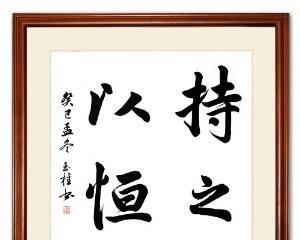 持之
以恒
癸巳孟冬玉柱书